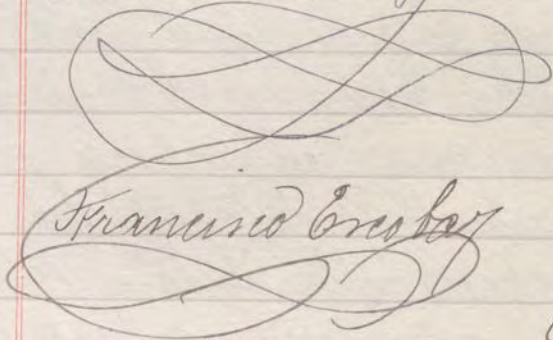 Francisco Escobar